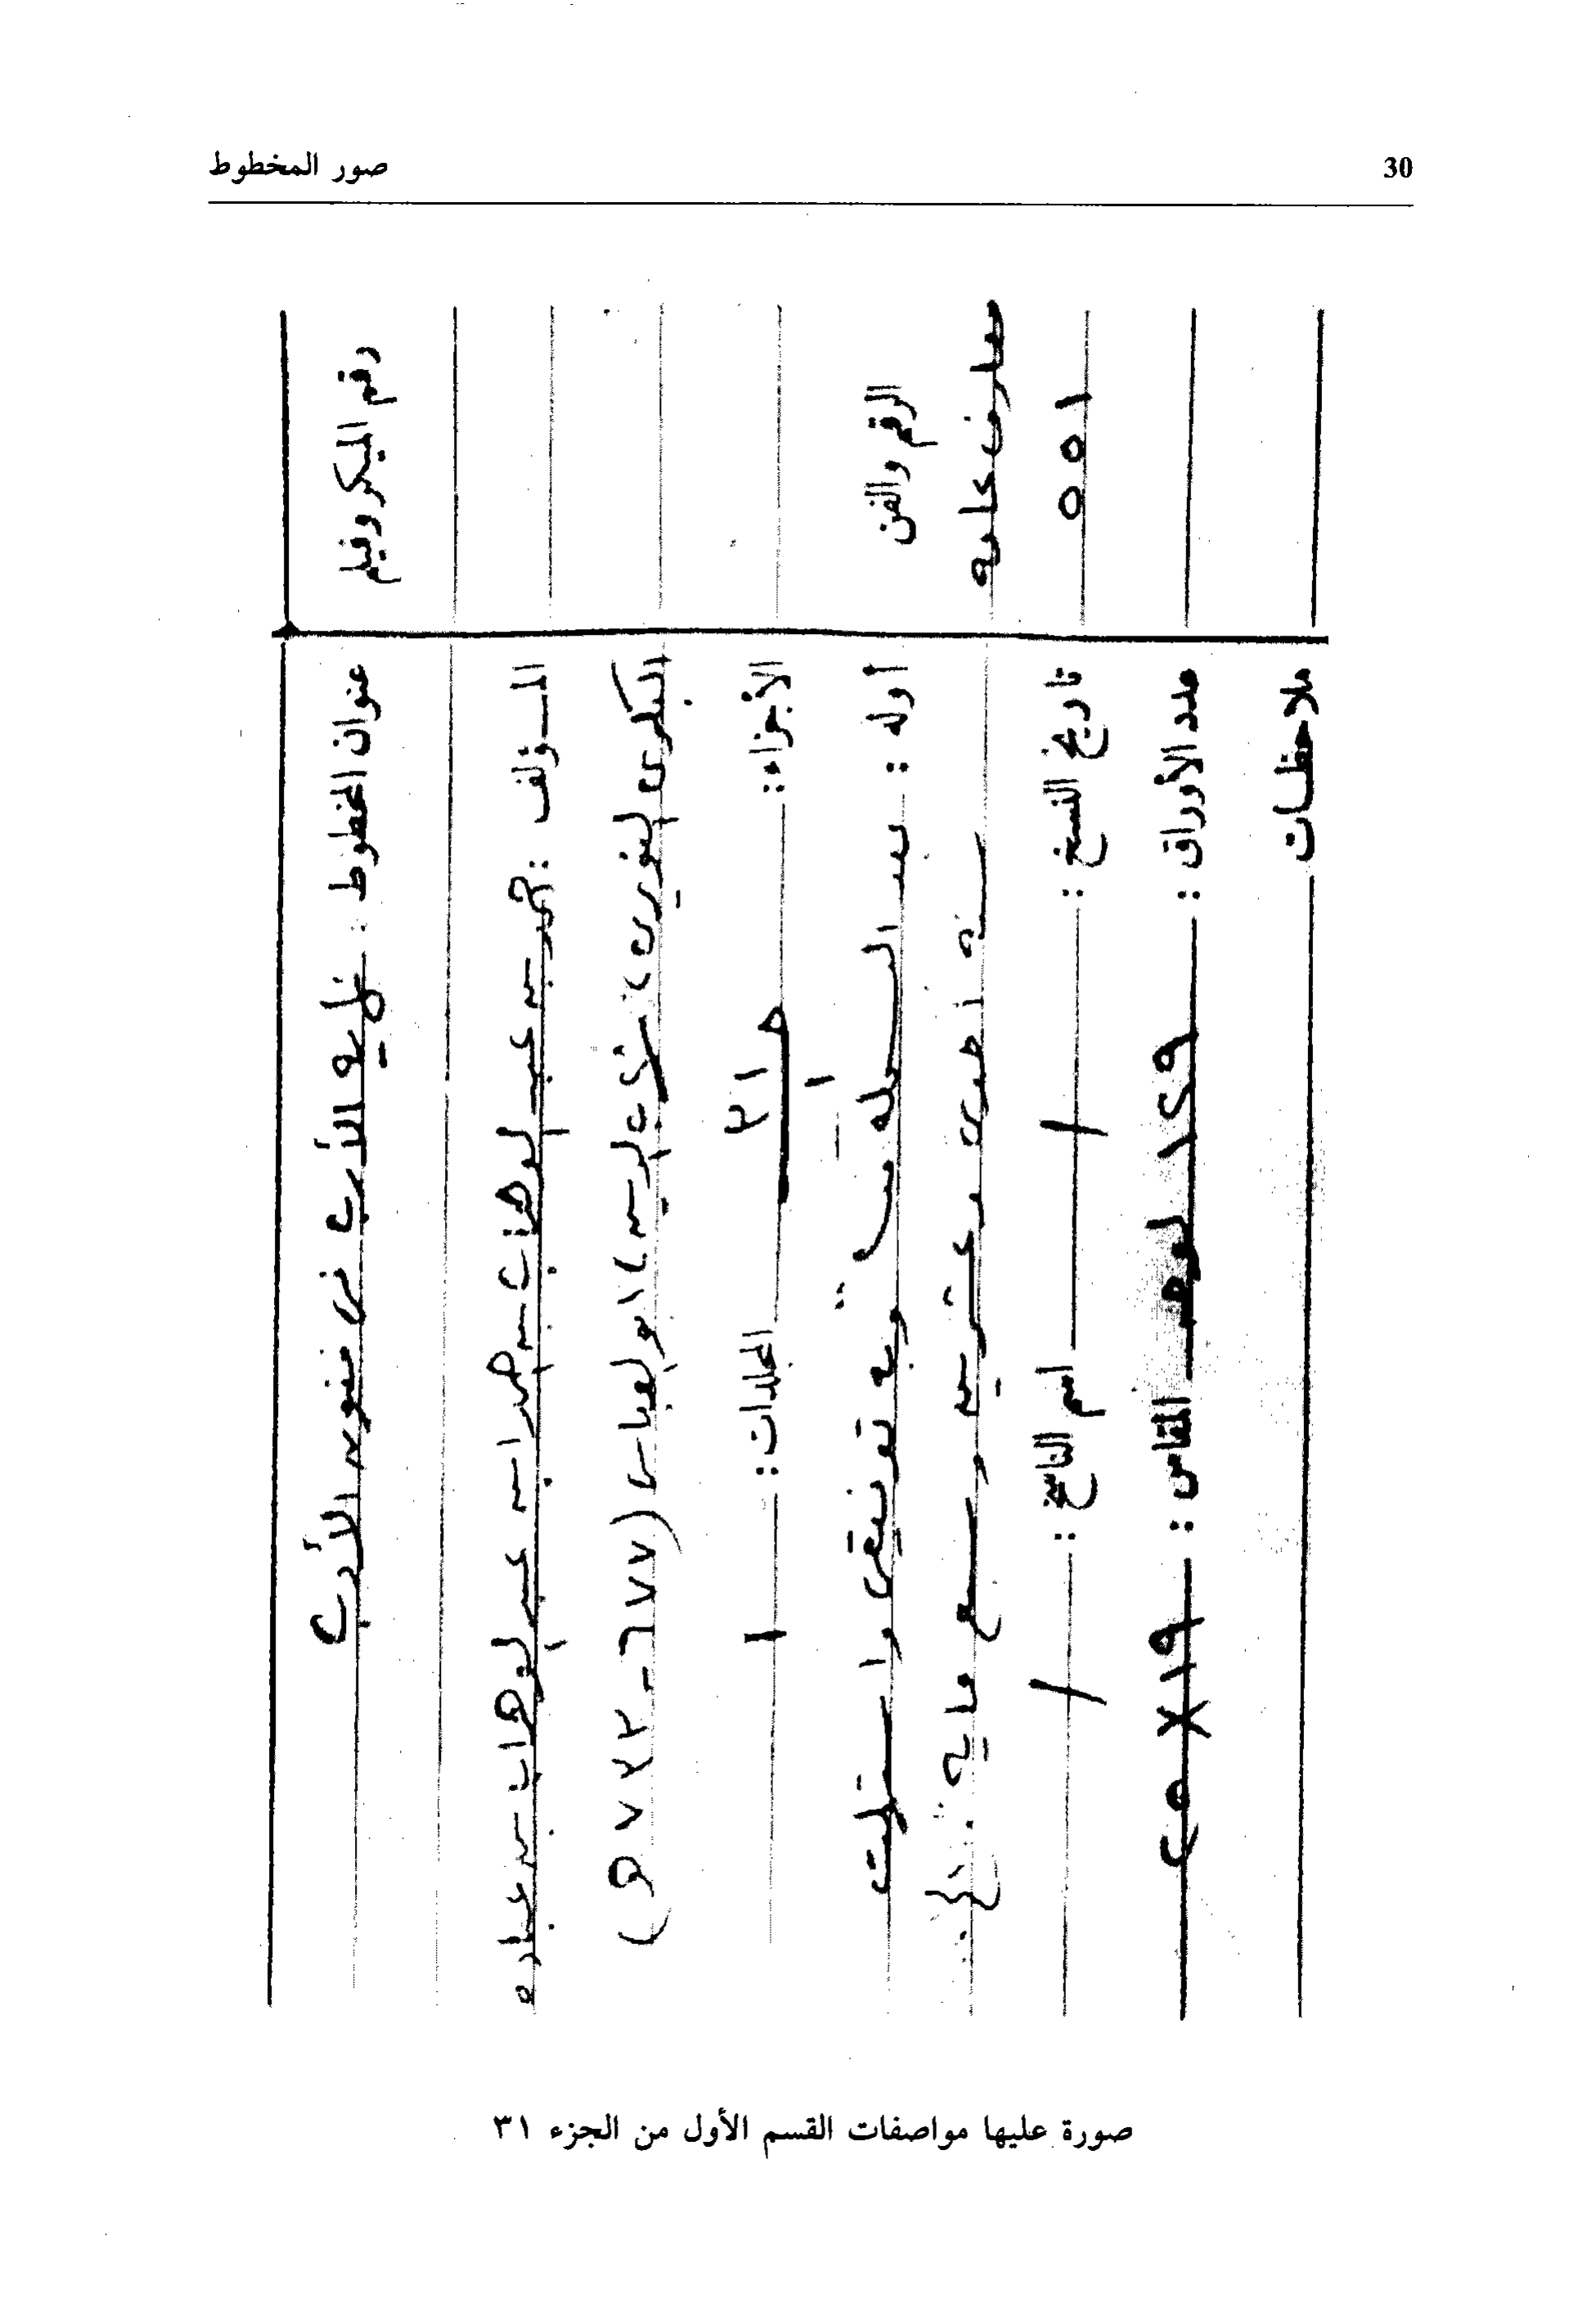 30
صور المخطوط
رقم الميكروفيلم
الرقم والفن
معارف عامه
٥٥١
عنوان المخطوط : نهاية الأرب فى فنون الأدب
المـــؤلف : أحمد بن عبد الوهاب بن محمد بن عبد الوهاب بن عباده
البكرى النويرى، شهاب الدين، ابو العباس (٦٧٧ - ٧٣٣ هـ)
الأجزاء : ٣١ المجلدات : ١
١
أوله : بعد البسملة وبه توفيقى واستهلت
سنه احدى وعشرين وسبع مايه ... الخ ..
تاريخ النسخ : / اسم الناسخ : /
عدد الأوراق : ١٢٩ لوحه المقاس : ١٩ × ٢٥
ملاحظات
صورة عليها مواصفات القسم الأول من الجزء ٣١